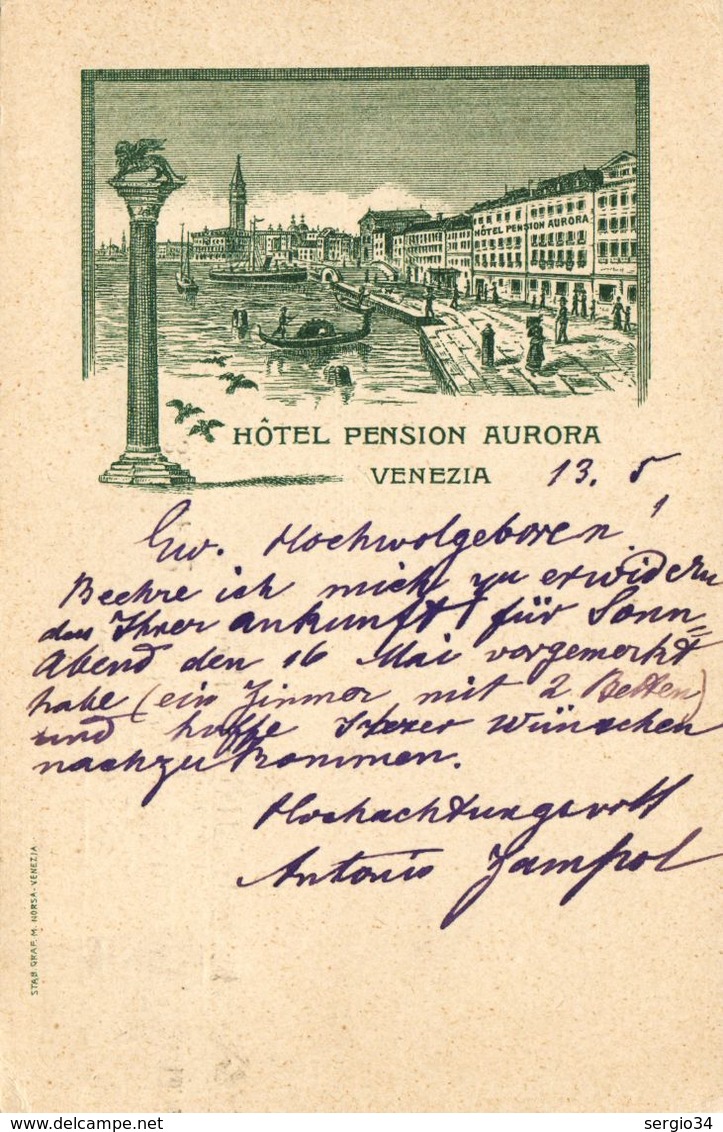 HÔTEL PENSION AURORA
HÔTEL PENSION AURORA
VENEZIA
13. 5
Ew. Hochwolgeboren!
Beehre ich mich zu erwidern
das Ihrer Ankunft für Sonn=
Abend den 16 Mai vorgemerkt
habe (ein Zimmer mit 2 Betten)
und hoffe Ihrer Wünschen
nachzukommen.
Hochachtungsvoll
Antonio
STAB. GRAF. M. NORSA-VENEZIA
sergio34